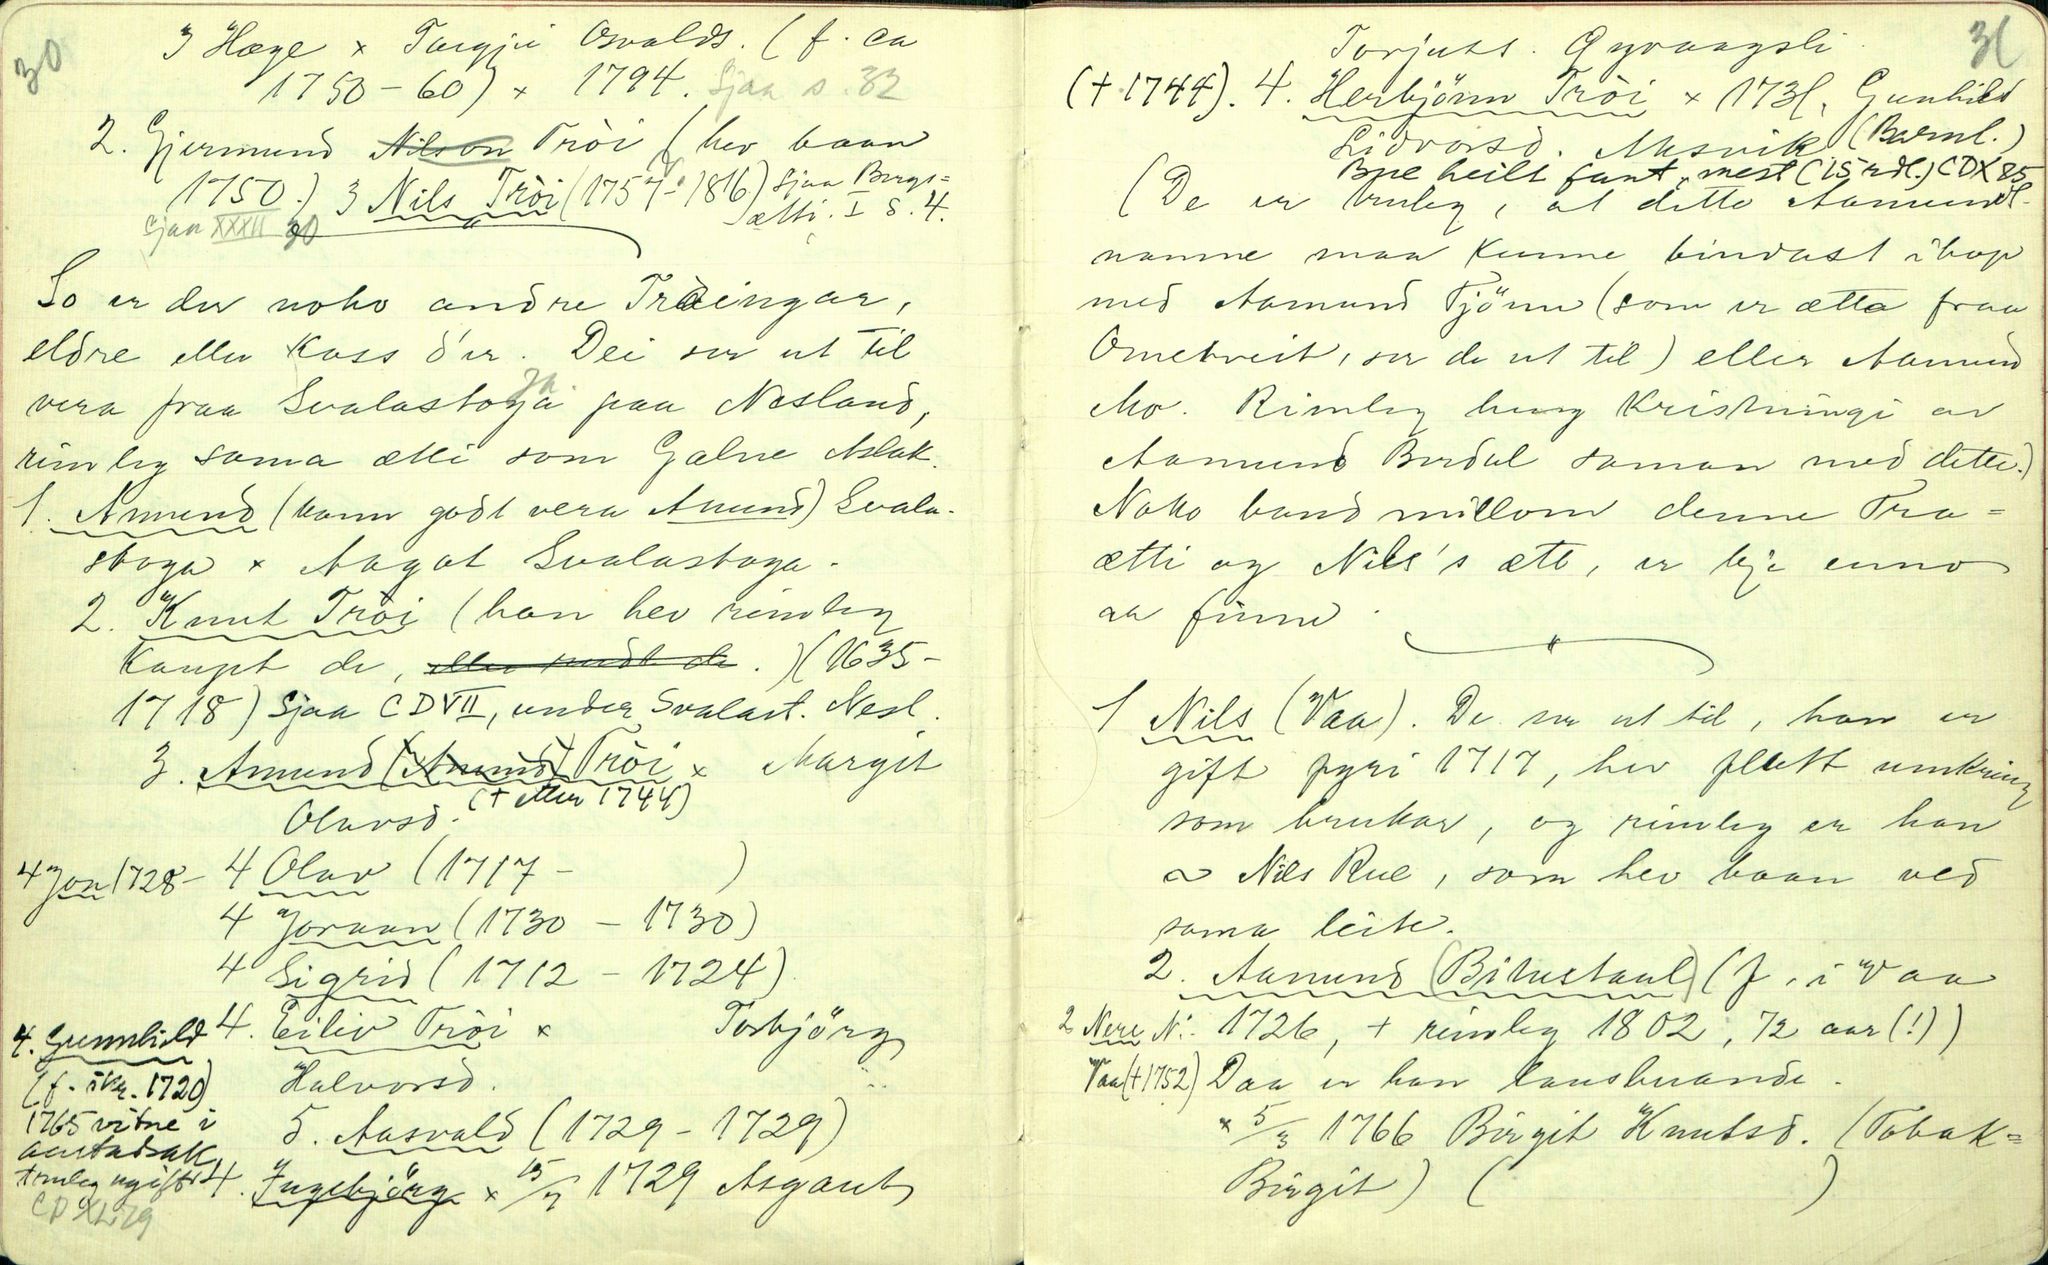 30
3 Hæge × Targjei Osvalds. (f. ca
1750-60) × 1794. Sjaa s. 32
2. Gjermund Nilson Tröi (hev baan
1750.) 3 Nils Tröi (1757-1816) Sjaa Bergs=
ætti. I S. 4.
Sjaa XXXII 30
So er der noko andre Tröingar,
eldre eller koss d'er. Dei ser ut til
vera fraa Svalastoga paa Nesland,
rimleg sama ætti som Galne Aslak.
1. Amund (kann godt vera Anund) Svala-
stoga × Aagot Svalastoga.
2. Knut Tröi (han hev rimleg
kaupt de, eller de.) (1635-
1718) Sjaa CDVII, under Svalast. Nesl.
3. Amund (Anund) Tröi × Margit
Olavsd. († etter 1744)
4 Jon 1728-
4 Olav (1717 - )
4 Joraan (1730 - 1730)
4 Sigrid (1712 - 1724)
4. Eiliv Tröi × Torbjörg
Halvorsd.
4. Gunnhild
(f. ikr. 1720)
1765 vitne i
aastadsak
truleg ugift
CD XL 79
5. Aasvald (1729 - 1729)
4. Ingebjörg × 15/7 1729 Asgaut
31
Torjuss. Gyvaagsli
(† 1744). 4. Herbjönn Tröi × 1731, Gunhild
Lidvorsd. Aasvik (Barnl.)
Bue heilt fant, mest (15 rdl.) CDX 85
(De er truleg, at dette Aamunds-
namne maa kunne bindast ihop
med Aamund Tjönn (som er ætta fraa
Ometveit, ser de ut til) eller Aamund
Mo. Rimleg heng kristningi av
Aamund Berdal saman med dette.)
Noko band millom denne Trø=
ætti og Nils's ætt, er kje enno
aa finne.
1 Nils (Vaa). De ser ut til, han er
gift fyri 1717, hev flutt umkring
som brukar, og rimleg er han
Nils Rue, som hev baan ved
sama leite.
2. Aamund (Bitustaul) (f. i Vaa
1726, † rimleg 1802, 72 aar (!))
2 Nere N.
Vaa († 1752)
Daa er han lausbuande.
× 5/3 1766 Birgit Knutsd. (Tobak=
Birgit) ( )